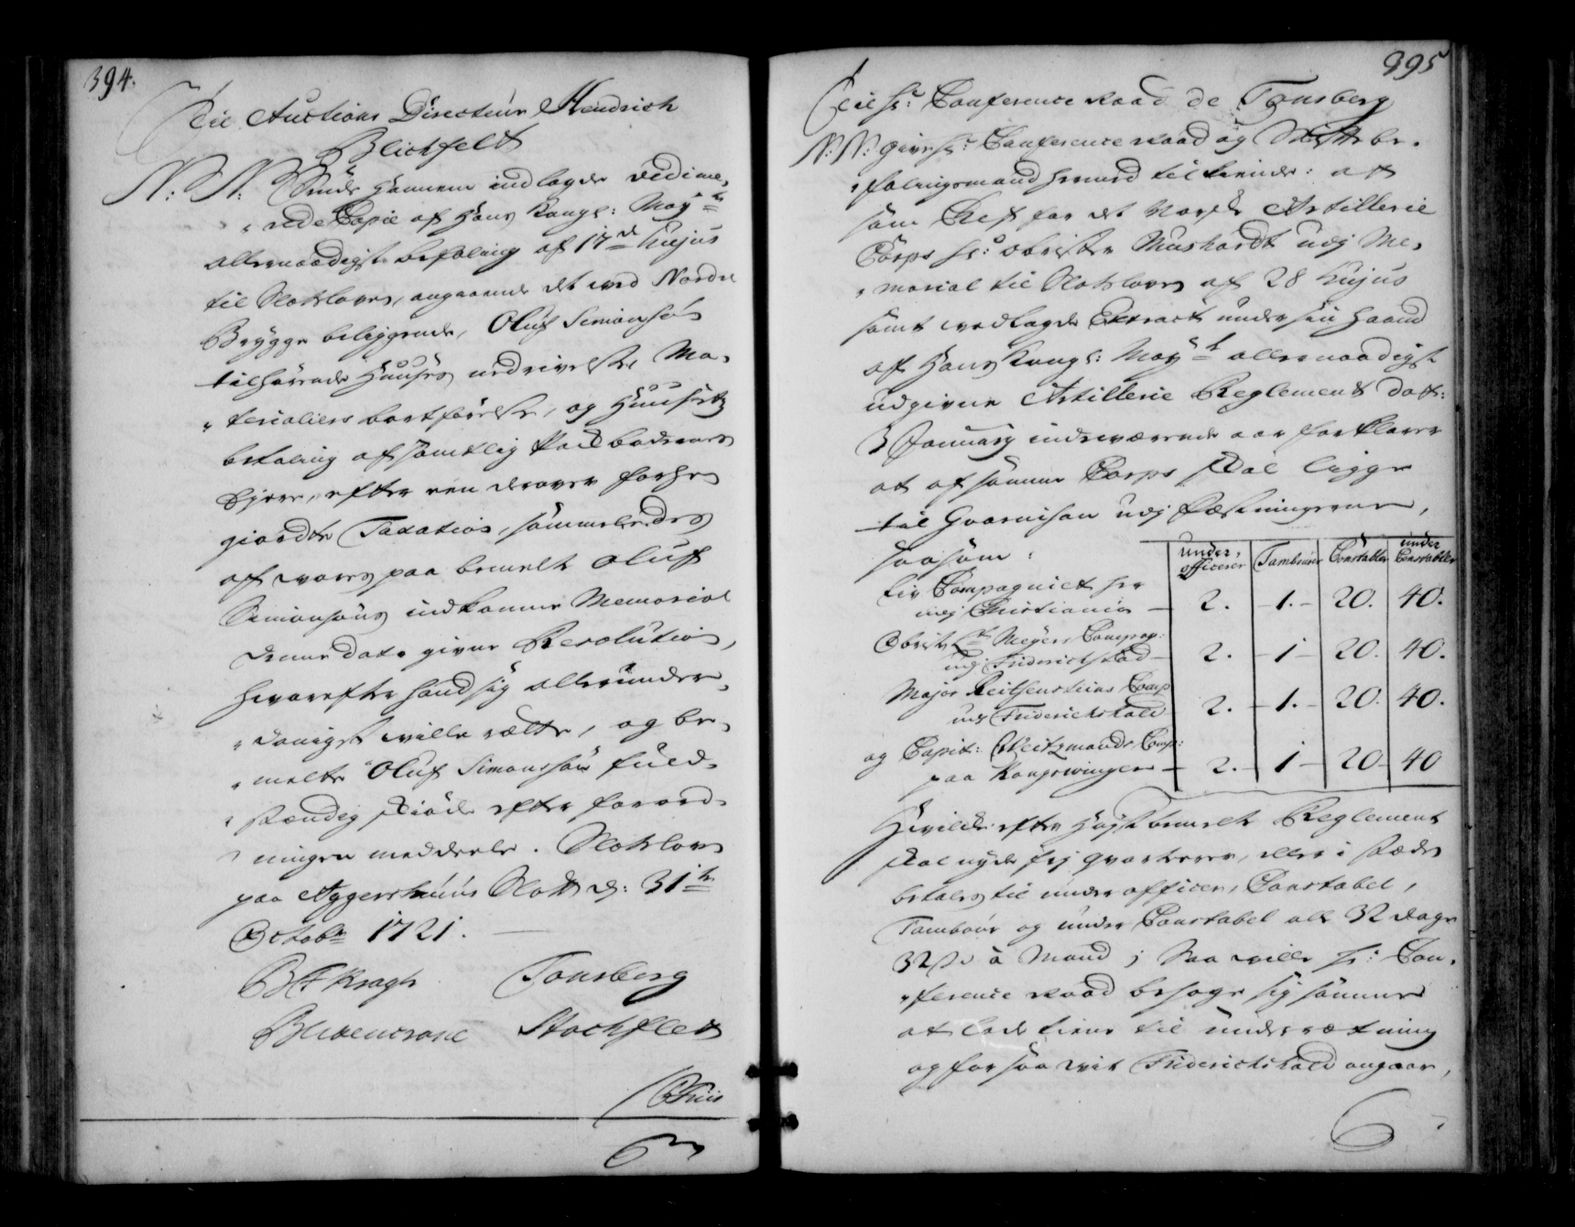 394.
Til Auctions Directeur Hendrich
Blichfeldt
N: N: Sendes hannem indlagde vedime-
rede Copie af Hans Kongl: May:ts
allernaadigste befaling af 17d hujus
til Slotsloven, angaaende det ved Nordre
Brygge beliggende, Oluf Simonsøn
tilhørende Huuses nedrivelse, Ma-
terialiers bortførelse, og Huusets
betaling af samtlig Stadboderens
Ejere, efter een derover forhen
giordte Taxation, sammeledes
af vores paa bemelte Oluf
Simonsøns indkomne Memorial
denne dato givne Resolution,
hvorefter hand sig allerunder-
danigst ville rætte, og be-
melte Oluf Simonsøn fuld-
stændig skiøde efter forord-
ningen meddeele. Slotsloven
paa Aggershuus Slott d: 31te
Octobr 1721.
B F Kragh Tonsberg
Blixencrone Stockfleth
395
Til Hr: Conference Raad de Tonsberg
N: N: gives Hr: Conference Raad og Stiftbe-
falingsmand hermed tilkiende: at
som Chef for det Norske Artillerie
Corps Hr: Obrister Mushardt udj Me-
morial til Slotsloven af 28 hujus
samt vedlagde Extract under sin haand
af Hans Kongl: May:ts allernaadigst
udgivne Artillerie Reglement dat:
3 January indeværende aar forklarer
at af samme Corps skal ligge
til Guarnison udj Fæstningerne,
saasom:
under officerer Tambourer Constabler under Constabler
Liv Compagniet her
udj Christiania – 2. – 1. – 20. 40.
Obrist Lt Meyers Compag:
udj Friderichstad – 2. – 1 – 20. 40.
Major Reitzensteins Comp
udj Friderichshald 2. – 1. – 20. 40.
og Capit: Weitzmands Comp:
paa Kongswinger – 2. – 1 – 20 – 40
Hvilke efter høystbemelte Reglement
skal nyde frj qvarteer, eller i stæden
betales til under officer, Constabel,
Tambour og under Constabel alle 32 dage
32 s: a Mand; Saa ville Hr: Con-
ference Raad behage sig samme
at lade tiene til underretning
og forsaavit Friderichshald angaar,